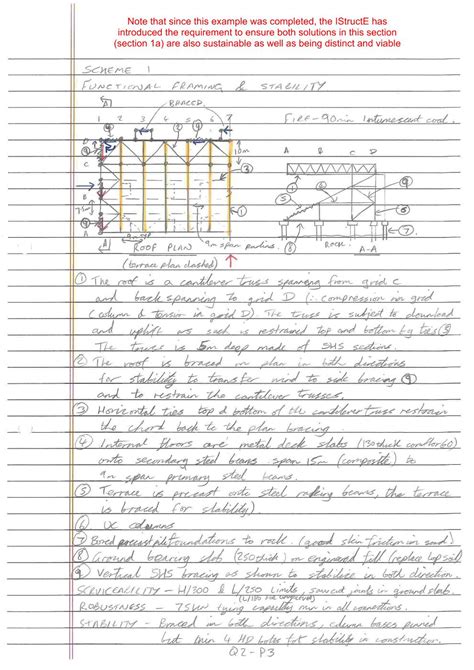 Note that since this example was completed, the IStructE has
introduced the requirement to ensure both solutions in this section
(section 1a) are also sustainable as well as being distinct and viable
SCHEME 1
FUNCTIONAL FRAMING & STABILITY
A
BRACED
1 2 3 4 5 6 7
FIRE - 90min Intumescent coat.
D
C
B
A
10m
A B C D
ROOF PLAN
9m span purlins.
(terrace plan dashed)
ROCK
A-A
① The roof is a cantilever truss spanning from grid C
and back spanning to grid D (∴ compression in grid
C column & tension in grid D). The truss is subject to download
and uplift as such is restrained top and bottom by ties ③
The truss is 5m deep made of SHS sections.
② The roof is braced on plan in both directions
for stability to transfer wind to side bracing ⑨
and to restrain the cantilever trusses.
③ Horizontal ties top & bottom of the cantilever truss restrain
the chord back to the plan bracing.
④ Internal floors are metal deck slabs (130thick
onto secondary steel beams span 15m (composite) to
9m span primary steel beams.
⑤ Terrace is precast onto steel raking beams, the terrace
is braced for stability).
⑥ UC columns
⑦ Bored foundations to rock (good skin friction in sand)
⑧ Ground bearing slab (250thick) on engineered fill (replace top soil)
⑨ Vertical SHS bracing as shown to stabilise in both direction.
SERVICEABILITY - H/300 & L/250 limits, saw cut joints in ground slab.
ROBUSTNESS - 75kN tying capacity min in all connections.
STABILITY - Braced in both directions, column bases pinned
but min 4 HD bolts for stability in construction.
Q2-P3